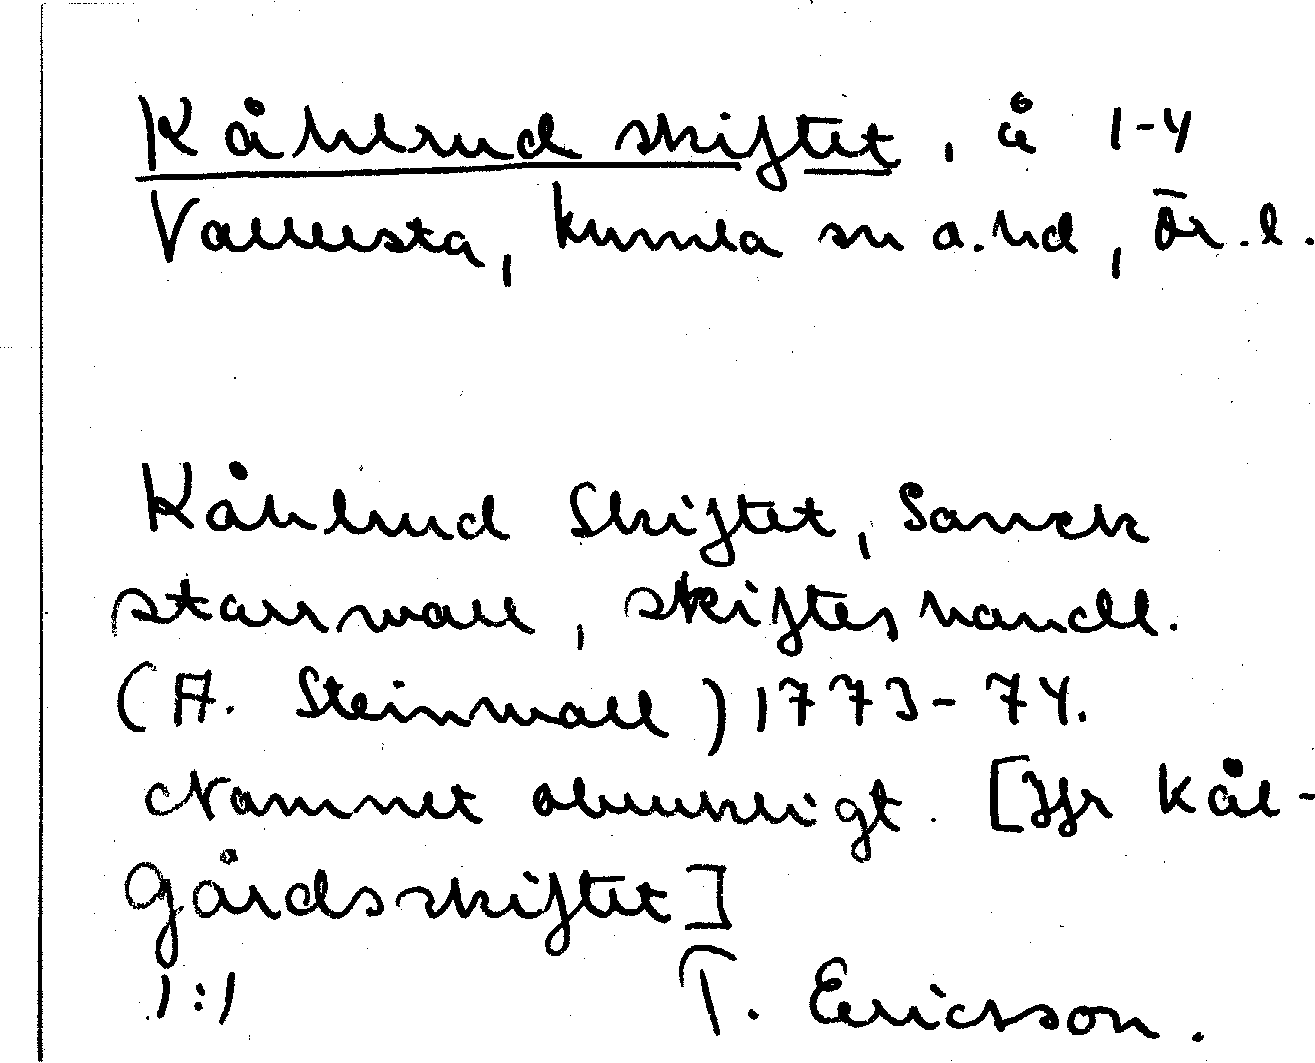 Kåhlrud skiftet, å 1-4
Vallersta, Kumla sn a. hd, Ör. l.
Kåhlrud Skiftet, Sanck
starrwall, skifteshandl.
(A. Steinwall) 1773-74.
Namnet obrukligt. [Jfr Kål-
gårdsskiftet]
1:1 T. Ericsson.